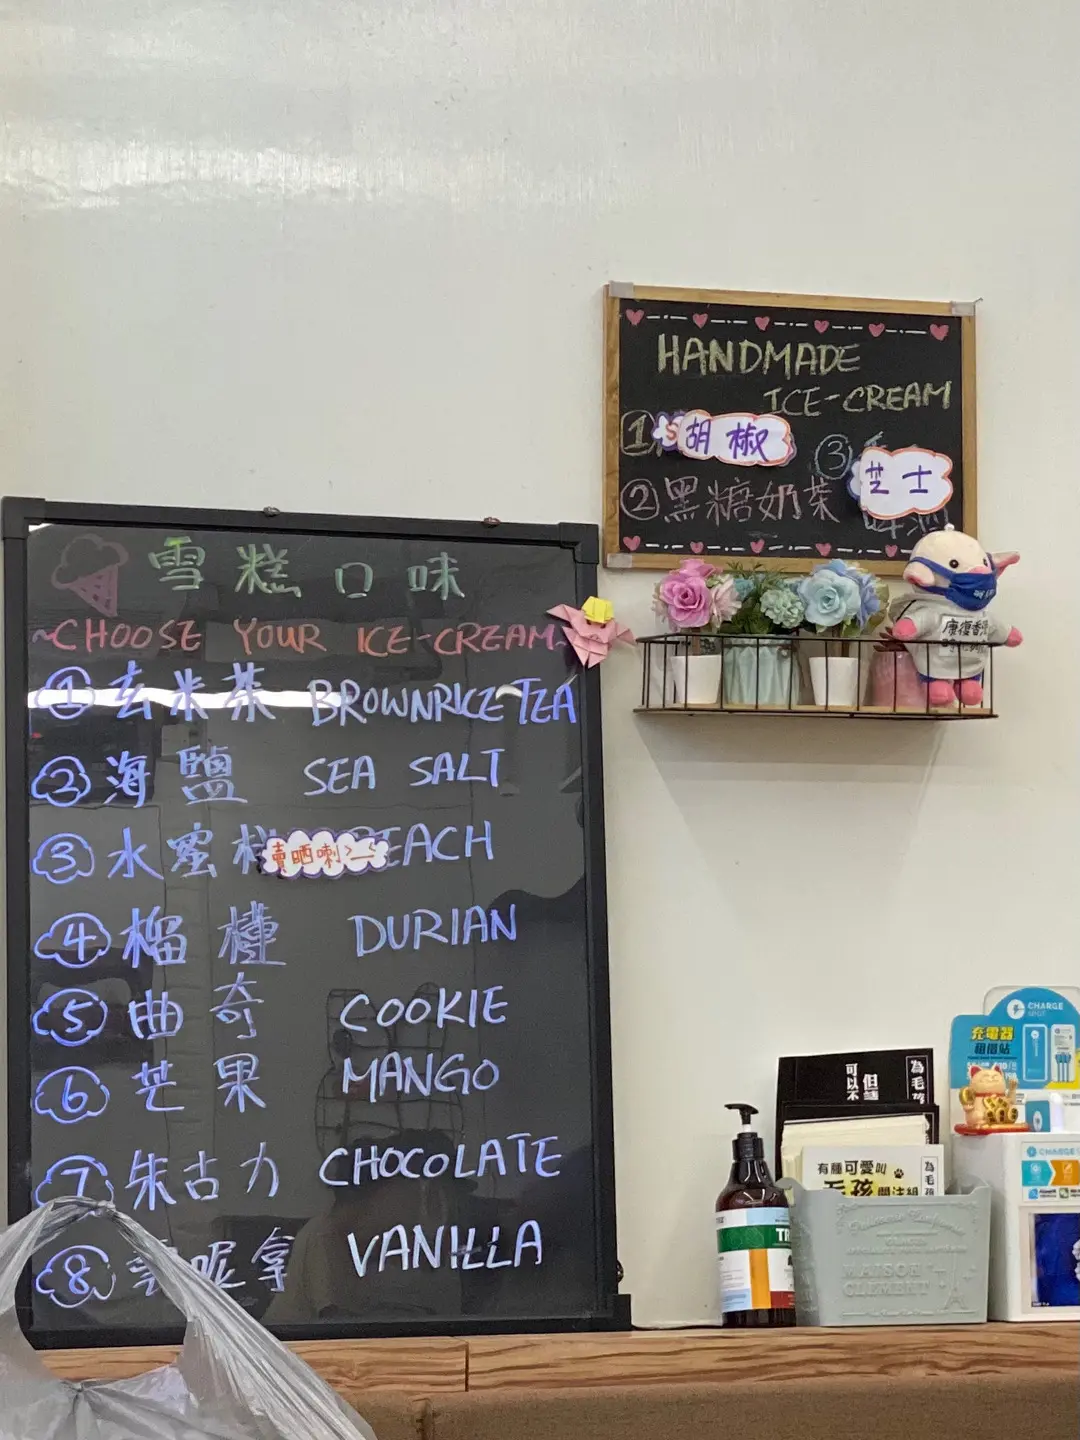 HANDMADE
ICE-CREAM
① 胡椒
③ 芝士
② 黑糖奶茶
雪糕口味
~CHOOSE YOUR ICE-CREAM~
① 玄米茶 BROWNRICE TEA
② 海鹽 SEA SALT
③ 水蜜 EACH
賣晒喇>_<
④ 榴槤 DURIAN
⑤ 曲奇 COOKIE
⑥ 芒果 MANGO
⑦ 朱古力 CHOCOLATE
⑧ 呢拿 VANILLA
康復香
CHARGE
充電器
租借站
CHARGE
可以不
但請
為毛孩
有種可愛叫
毛孩關注組
為毛孩
TR
MAISON
CLEMENT